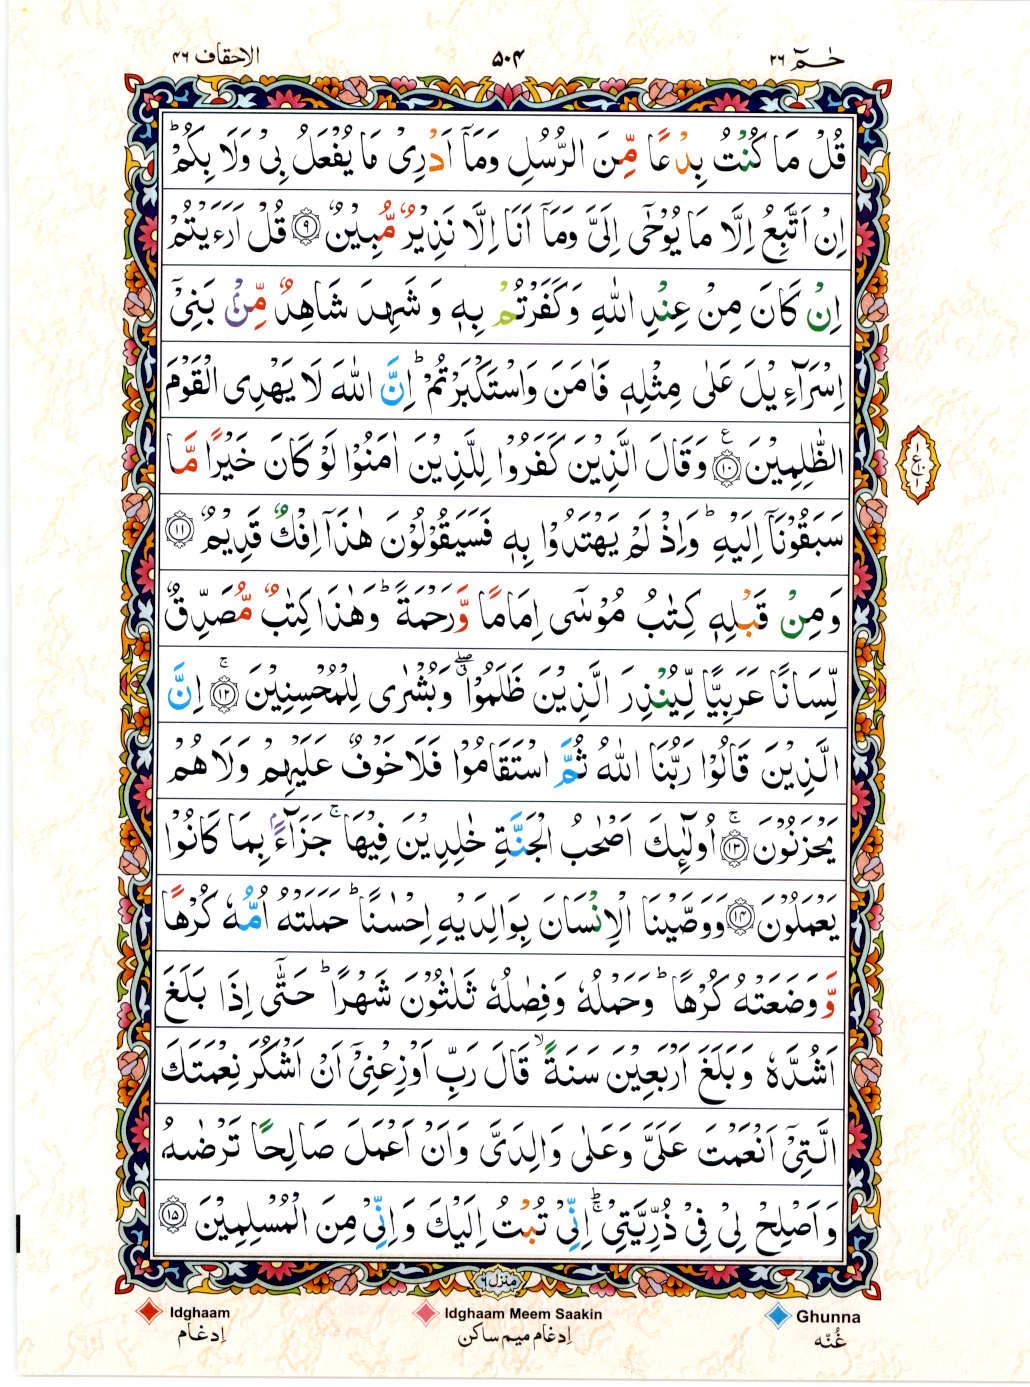 حٰمٓ ۲۶
۵۰۴
الاحقاف ۴۶
قُلْ مَا كُنْتُ بِدْعًا مِّنَ الرُّسُلِ وَمَاۤ اَدْرِىْ مَا يُفْعَلُ بِىْ وَلَا بِكُمْؕ
اِنْ اَتَّبِعُ اِلَّا مَا يُوْحٰٓى اِلَىَّ وَمَاۤ اَنَا اِلَّا نَذِيْرٌ مُّبِيْنٌ ۹ قُلْ اَرَءَيْتُمْ
اِنْ كَانَ مِنْ عِنْدِ اللّٰهِ وَكَفَرْتُمْ بِهٖ وَ شَهِدَ شَاهِدٌ مِّنْۢ بَنِىْۤ
اِسْرَآءِيْلَ عَلٰى مِثْلِهٖ فَاٰمَنَ وَاسْتَكْبَرْتُمْؕ اِنَّ اللّٰهَ لَا يَهْدِى الْقَوْمَ
الظّٰلِمِيْنَ ۱۰ وَقَالَ الَّذِيْنَ كَفَرُوْا لِلَّذِيْنَ اٰمَنُوْا لَوْ كَانَ خَيْرًا مَّا
سَبَقُوْنَاۤ اِلَيْهِؕ وَاِذْ لَمْ يَهْتَدُوْا بِهٖ فَسَيَقُوْلُوْنَ هٰذَاۤ اِفْكٌ قَدِيْمٌ ۱۱
وَمِنْ قَبْلِهٖ كِتٰبُ مُوْسٰٓى اِمَامًا وَّرَحْمَةًؕ وَهٰذَا كِتٰبٌ مُّصَدِّقٌ
لِّسَانًا عَرَبِيًّا لِّيُنْذِرَ الَّذِيْنَ ظَلَمُوْاۖۗ وَبُشْرٰى لِلْمُحْسِنِيْنَ ۚ ۱۲ اِنَّ
الَّذِيْنَ قَالُوْا رَبُّنَا اللّٰهُ ثُمَّ اسْتَقَامُوْا فَلَا خَوْفٌ عَلَيْهِمْ وَلَا هُمْ
يَحْزَنُوْنَ ۚ ۱۳ اُولٰٓئِكَ اَصْحٰبُ الْجَنَّةِ خٰلِدِيْنَ فِيْهَاۚ جَزَآءًۢ بِمَا كَانُوْا
يَعْمَلُوْنَ ۱۴ وَوَصَّيْنَا الْاِنْسَانَ بِوَالِدَيْهِ اِحْسٰنًاؕ حَمَلَتْهُ اُمُّهٗ كُرْهًا
وَّوَضَعَتْهُ كُرْهًاؕ وَحَمْلُهٗ وَفِصٰلُهٗ ثَلٰثُوْنَ شَهْرًاؕ حَتّٰٓى اِذَا بَلَغَ
اَشُدَّهٗ وَبَلَغَ اَرْبَعِيْنَ سَنَةًۙ قَالَ رَبِّ اَوْزِعْنِىْۤ اَنْ اَشْكُرَ نِعْمَتَكَ
الَّتِىْۤ اَنْعَمْتَ عَلَىَّ وَعَلٰى وَالِدَىَّ وَاَنْ اَعْمَلَ صَالِحًا تَرْضٰىهُ
وَاَصْلِحْ لِىْ فِىْ ذُرِّيَّتِىْؕۚ اِنِّىْ تُبْتُ اِلَيْكَ وَاِنِّىْ مِنَ الْمُسْلِمِيْنَ ۱۵
منزل ۶
Ghunna
غُنّه
Idghaam Meem Saakin
اِدغام میم ساکن
Idghaam
اِدغام